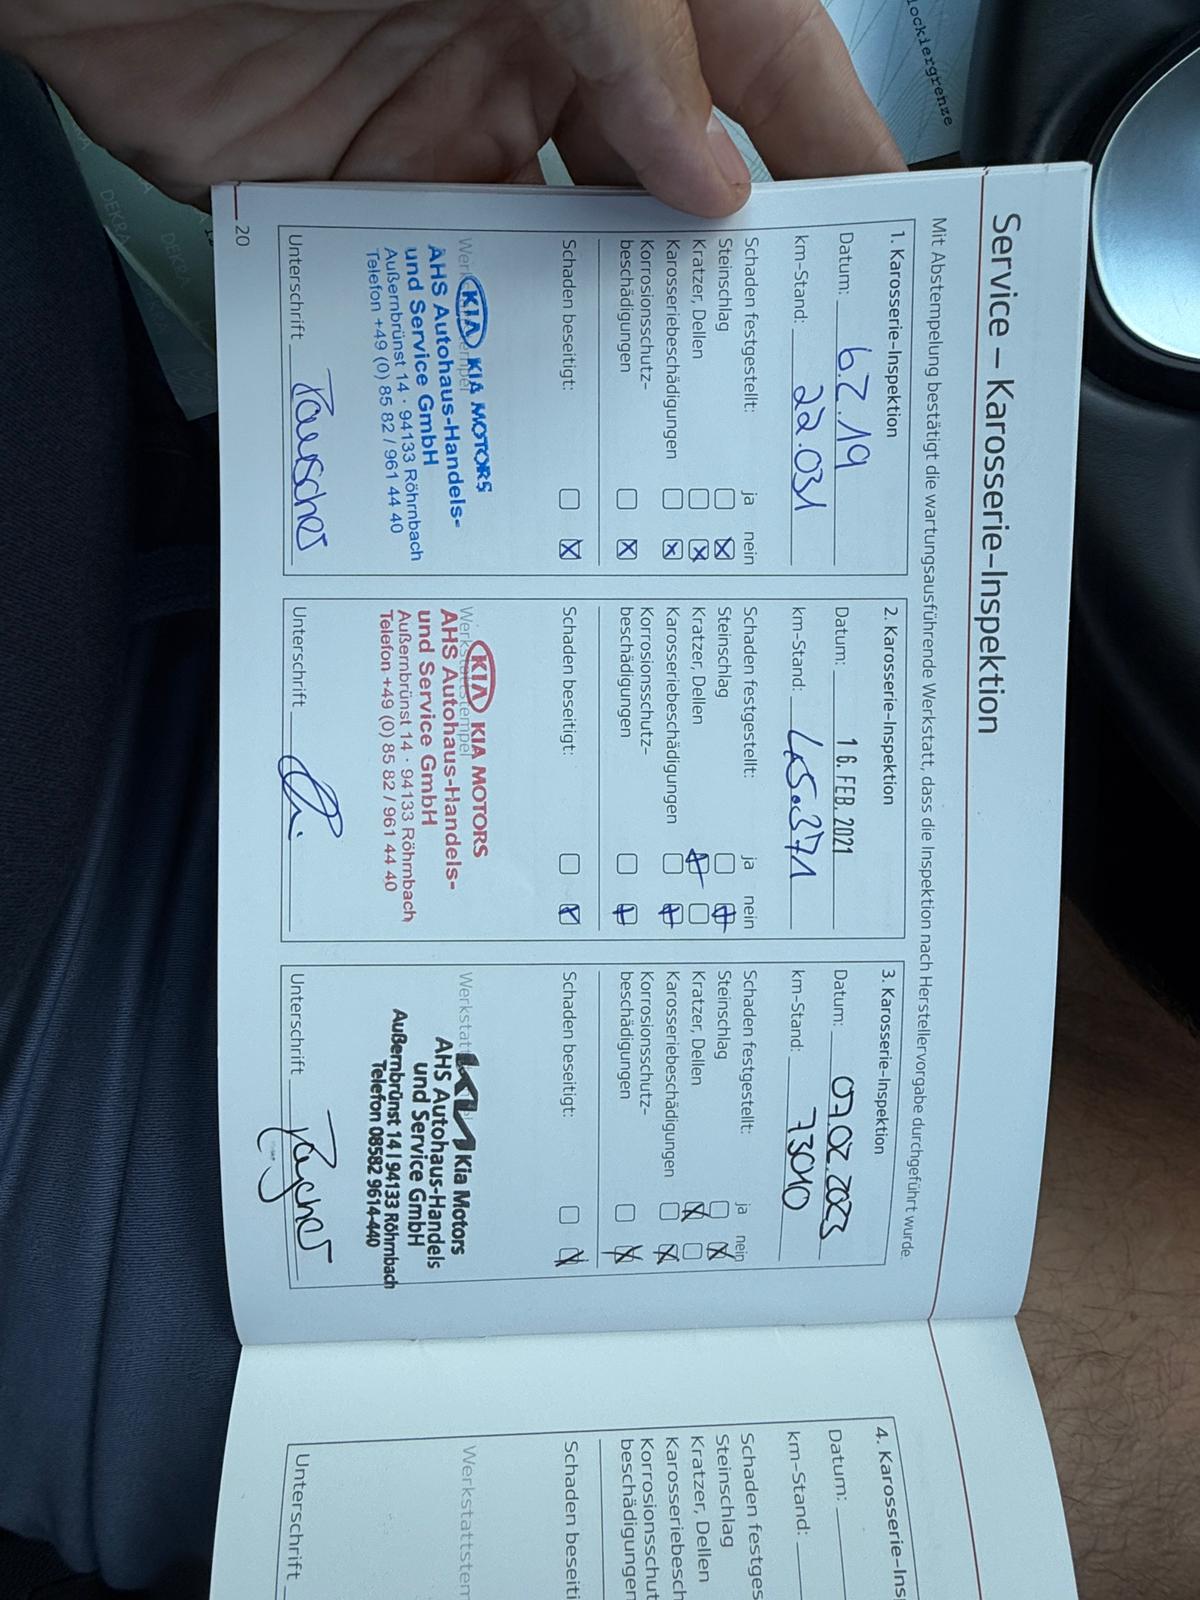 lockiergrenze
DEKRA
DEKRA
DEKRA
Service – Karosserie-Inspektion
Mit Abstempelung bestätigt die wartungsausführende Werkstatt, dass die Inspektion nach Herstellervorgabe durchgeführt wurde.
1. Karosserie-Inspektion
Datum: 6.2.19
km-Stand: 22.031
Schaden festgestellt: ja nein
Steinschlag
Kratzer, Dellen
Karosseriebeschädigungen
Korrosionsschutz-
beschädigungen
Schaden beseitigt:
KIA KIA MOTORS
AHS Autohaus-Handels-
und Service GmbH
Außernbrünst 14 · 94133 Röhrnbach
Telefon +49 (0) 85 82 / 961 44 40
Unterschrift
2. Karosserie-Inspektion
Datum: 16. FEB. 2021
km-Stand: 45.371
Schaden festgestellt: ja nein
Steinschlag
Kratzer, Dellen
Karosseriebeschädigungen
Korrosionsschutz-
beschädigungen
Schaden beseitigt:
Werkstattstempel
KIA KIA MOTORS
AHS Autohaus-Handels-
und Service GmbH
Außernbrünst 14 · 94133 Röhrnbach
Telefon +49 (0) 85 82 / 961 44 40
Unterschrift
3. Karosserie-Inspektion
Datum: 07.02.2023
km-Stand: 73010
Schaden festgestellt: ja nein
Steinschlag
Kratzer, Dellen
Karosseriebeschädigungen
Korrosionsschutz-
beschädigungen
Schaden beseitigt:
KIA Kia Motors
AHS Autohaus-Handels
und Service GmbH
Außernbrünst 14 | 94133 Röhrnbach
Telefon 08582 9614-440
Unterschrift
20
4. Karosserie-Ins
Datum:
km-Stand:
Schaden festges
Steinschlag
Kratzer, Dellen
Karosseriebesch
Korrosionsschut
beschädigungen
Schaden beseiti
Werkstattstem
Unterschrift